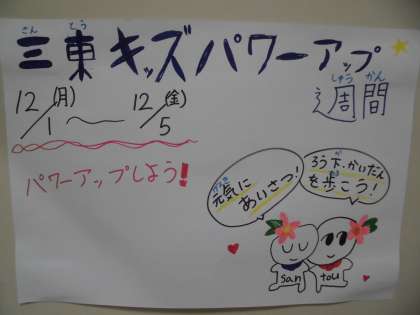 さん とう
三東キッズパワーアップ
しゅう かん
週間
12/1(月)〜12/5(金)
パワーアップしよう!
げんき
元気に
あいさつ!
ろう下、かいだん
を歩こう!
san tou